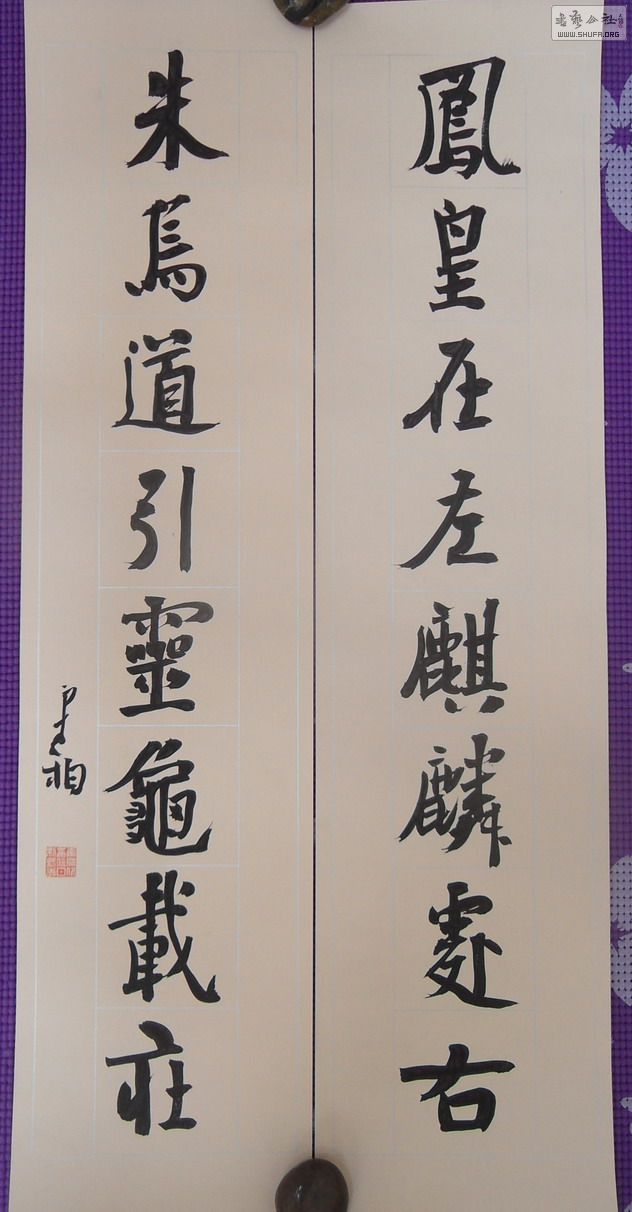 鳳皇在左麒麟處右
朱鳥道引靈龜載庄
書藝公社
WWW.SHUFA.ORG